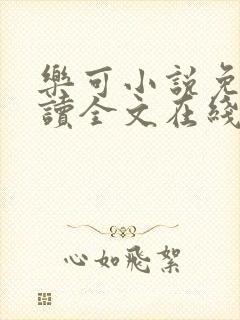 樂可小說免
讀全文在綫
心如飛絮